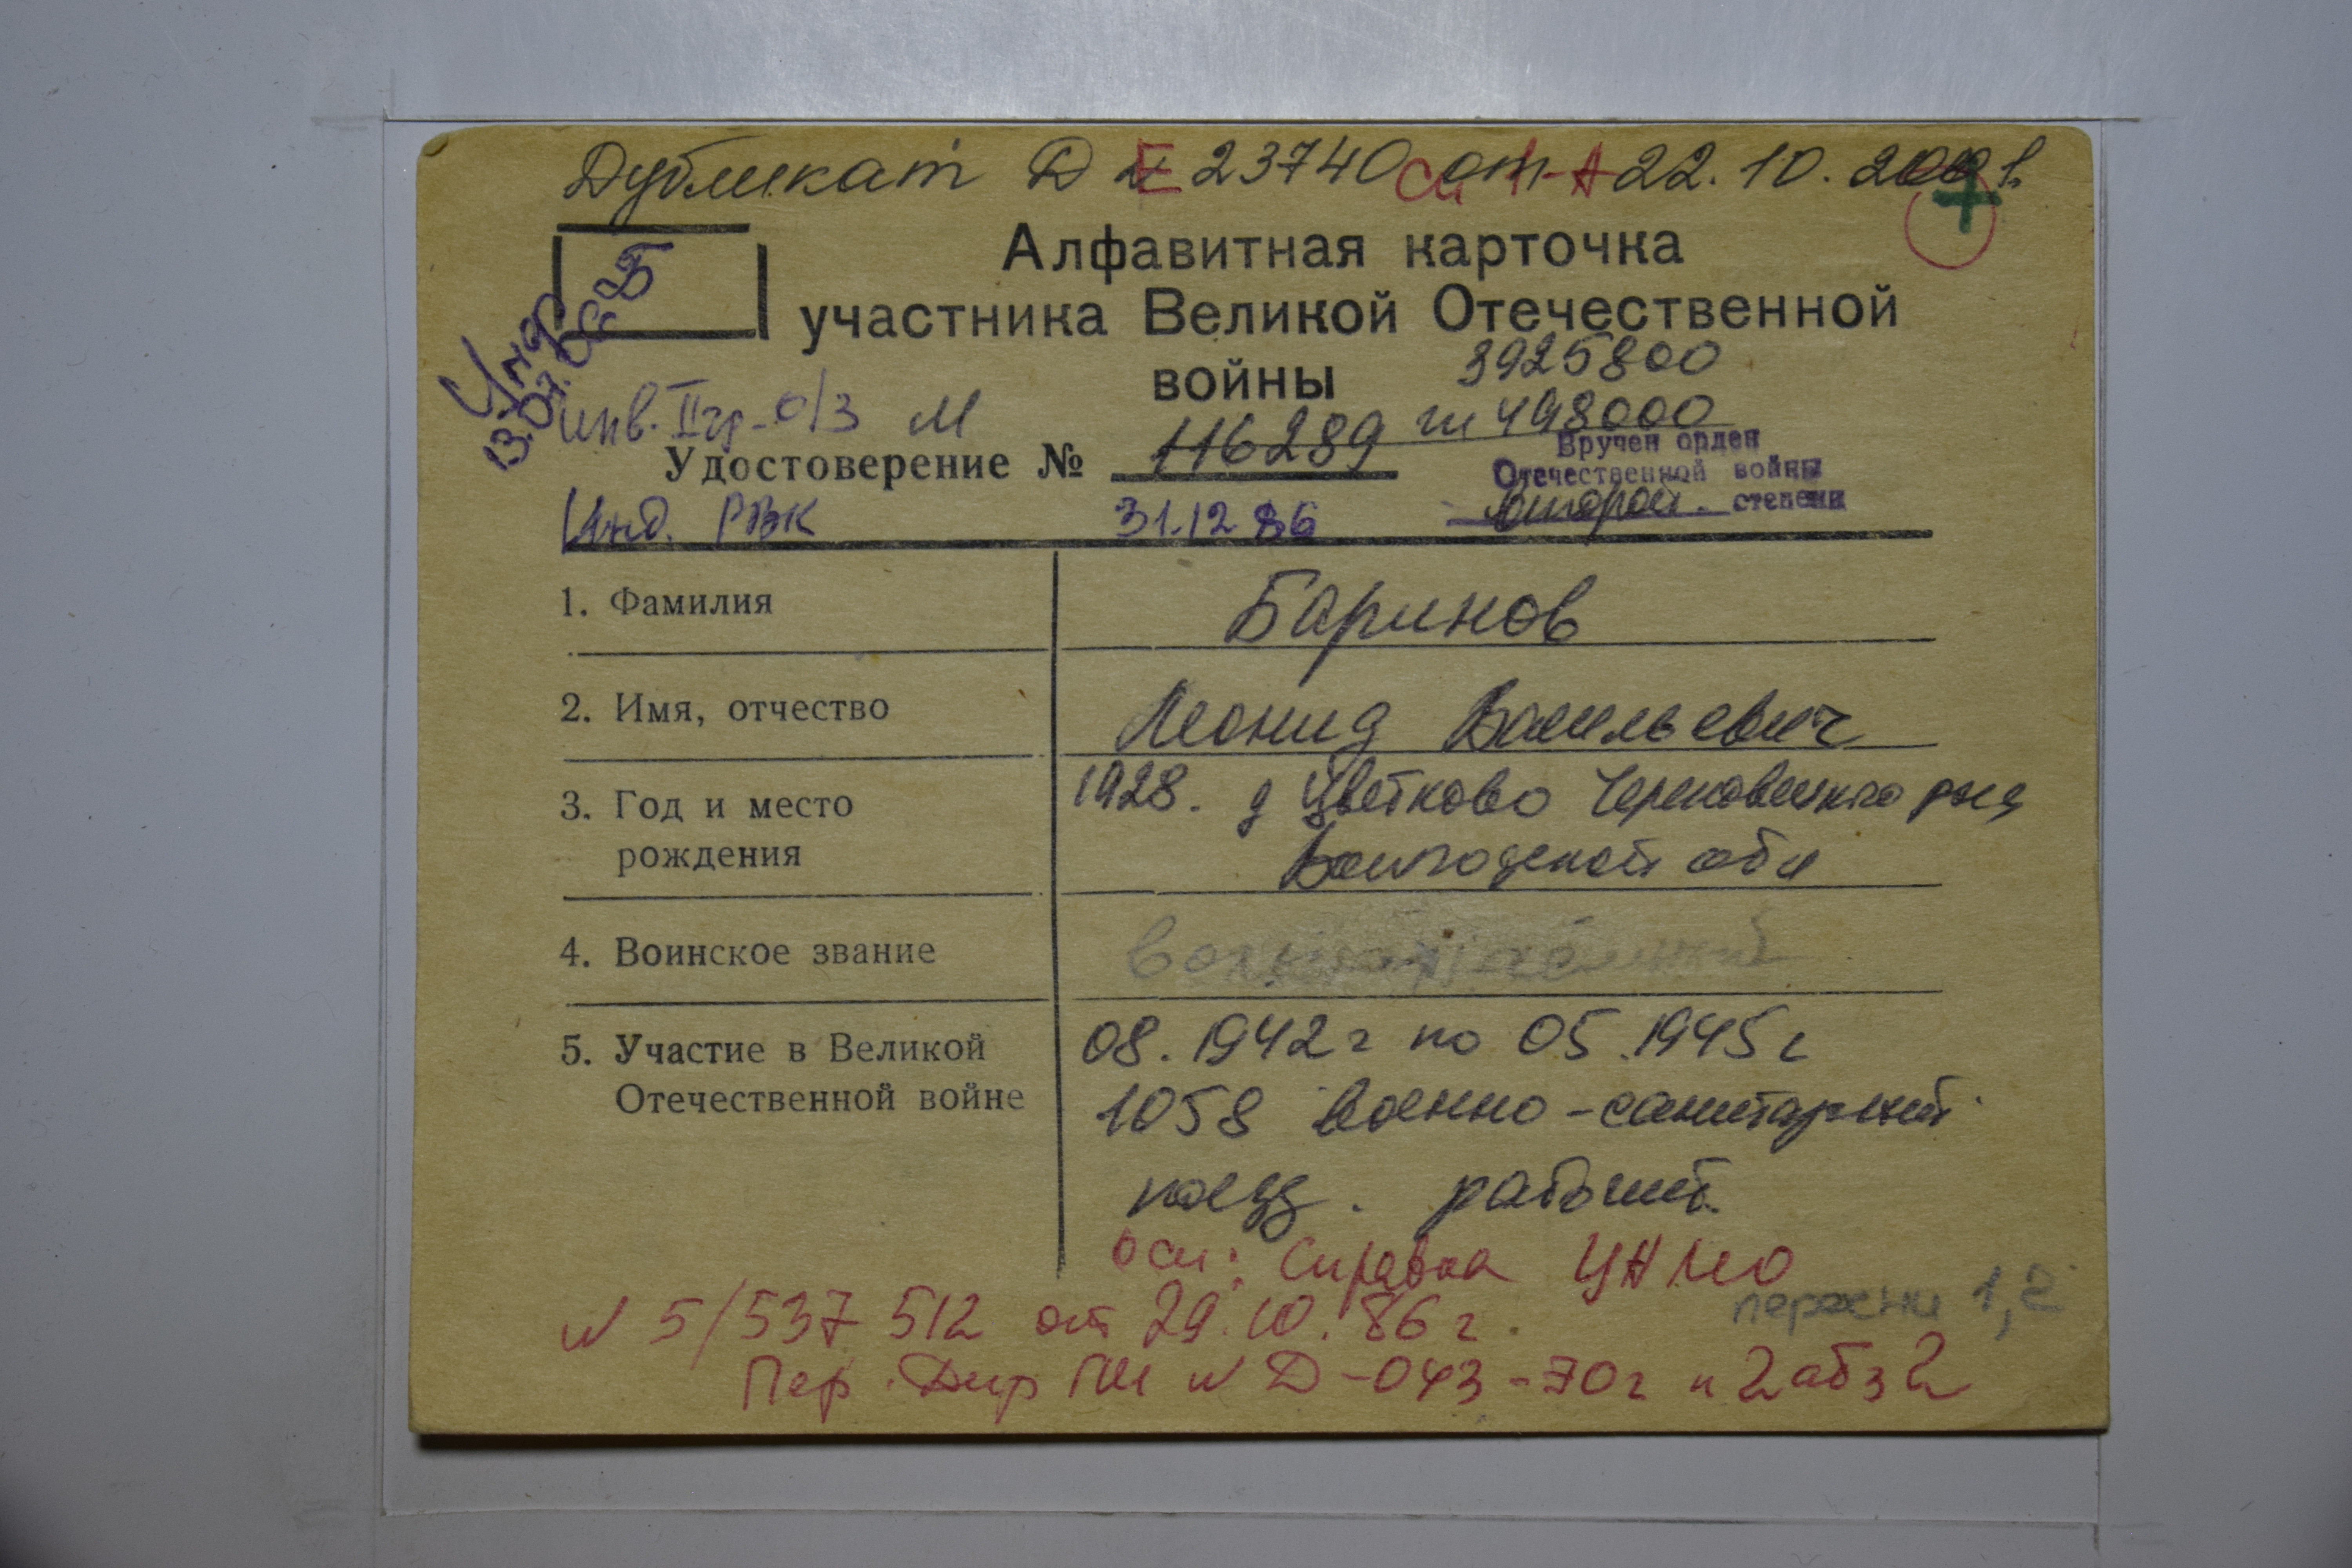 Дубликат Д № 23740 от 22.10.2001.
Е
Алфавитная карточка
участника Великой Отечественной
войны
Умер
13.07.
3925800
инв. II гр. о/з М
498000
Удостоверение № 116289
Вручен орден
Отечественной войны
второй степени
Инд. РВК 31.12.86
1. Фамилия Баринов
2. Имя, отчество Леонид Васильевич
3. Год и место рождения 1928. д Цветково Череповецкого р-на
Вологодской обл
4. Воинское звание
5. Участие в Великой Отечественной войне 08.1942г по 05.1945г
1058 военно-санитарный
поезд. рабочий.
осн: справка ЦАМО
№ 5/537512 от 29.10.86г.
1,2
Пер. Дир ГШ № Д-043-70г п 2 абз 2